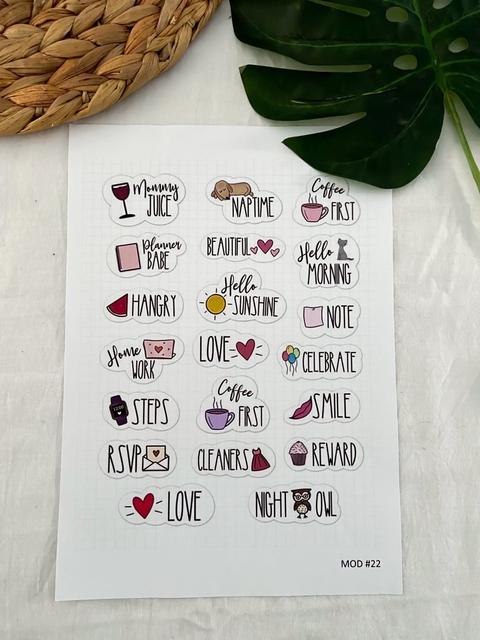 Mommy
JUICE
NAPTIME
Coffee
FIRST
Planner
BABE
BEAUTIFUL
Hello
MORNING
HANGRY
Hello
SUNSHINE
NOTE
Home
WORK
LOVE
CELEBRATE
STEPS
Coffee
FIRST
SMILE
RSVP
CLEANERS
REWARD
LOVE
NIGHT OWL
MOD #22